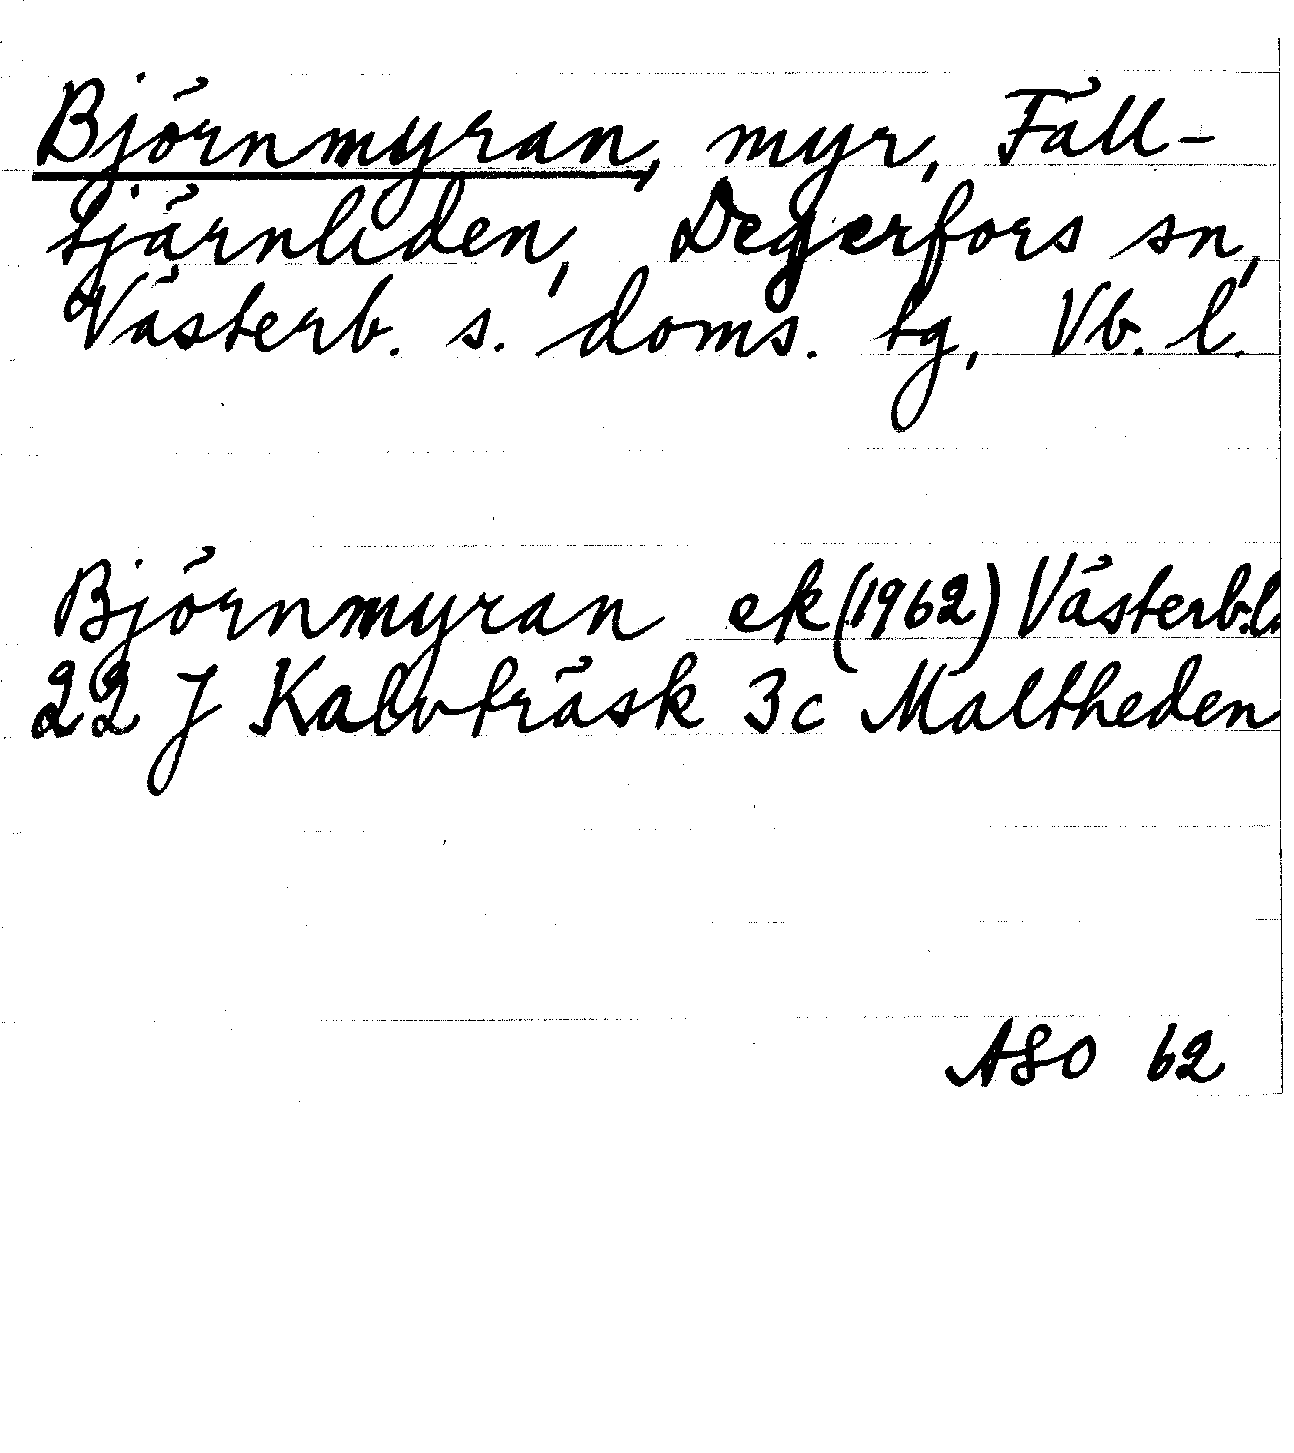 Björnmyran, myr, Fäll-
tjärnliden, Degerfors sn,
Västerb. s. doms. tg, Vb. l.
Björnmyran ek (1962) Västerb.l.
22 J Kalvträsk 3c Maltheden
ASO 62